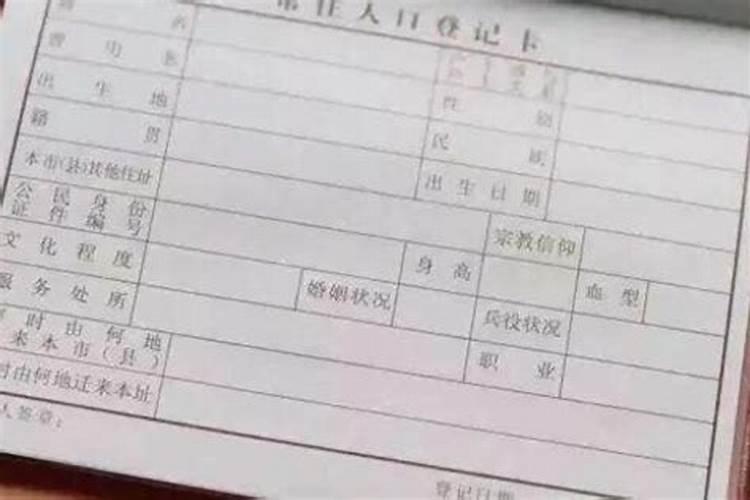 常住人口登记卡
名
曾用名
性别
出生地
民族
籍贯
出生日期
本市(县)其他住址
宗教信仰
公民身份
证件编号
身高
血型
文化程度
婚姻状况
兵役状况
服务处所
职业
时由何地
来本市(县)
时由何地迁来本址
人签章:
登记日期